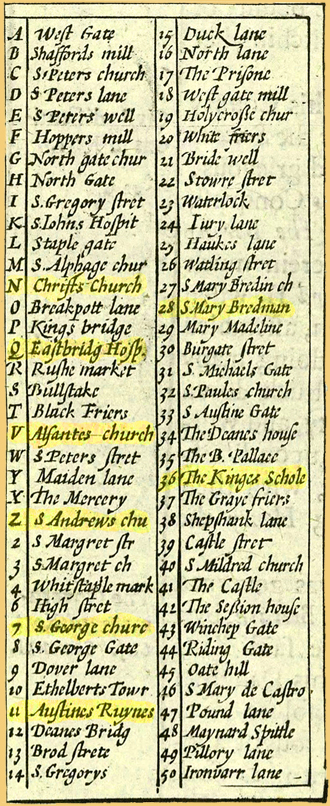 A West Gate
B Shaffords mill
C S Peters church
D S Peters lane
E S Peters well
F Hoppers mill
G North gate chur
H North Gate
I S. Gregory stret
K S. Iohns Hospit
L Staple gate
M S. Alphage chur
N Christs church
O Breakpott lane
P Kings bridge
Q Eastbridg Hosp.
R Rushe market
S Bullstake
T Black Friers
V Alsantes church
W S Peters stret
Y Maiden lane
X The Mercery
Z S Andrews chu
2 S Margret str
3 S Margret ch
4 Whitstaple mark
6 High stret
7 S. George churc
8 S. George Gate
9 Dover lane
10 Ethelberts Towr
11 Austines Ruynes
12 Deanes Bridg
13 Brod strete
14 S. Gregorys
15 Duck lane
16 North lane
17 The Prisone
18 West gate mill
19 Holycrosse chur
20 White friers
21 Bride well
22 Stowre stret
23 Waterlock
24 Iury lane
25 Haukes lane
26 Watling stret
27 S Mary Bredin ch
28 S Mary Bredman
29 Mary Madeline
30 Burgate stret
31 S. Michaels Gate
32 S. Paules church
33 S Austine Gate
34 The Deanes house
35 The B. Pallace
36 The Kinges Schole
37 The Graye friers
38 Shepshank lane
39 Castle stret
40 S Mildred church
41 The Castle
42 The Session house
43 Winchep Gate
44 Riding Gate
45 Oate hill
46 S Mary de Castro
47 Pound lane
48 Maynard Spittle
49 Pillory lane
50 Ironbarr lane